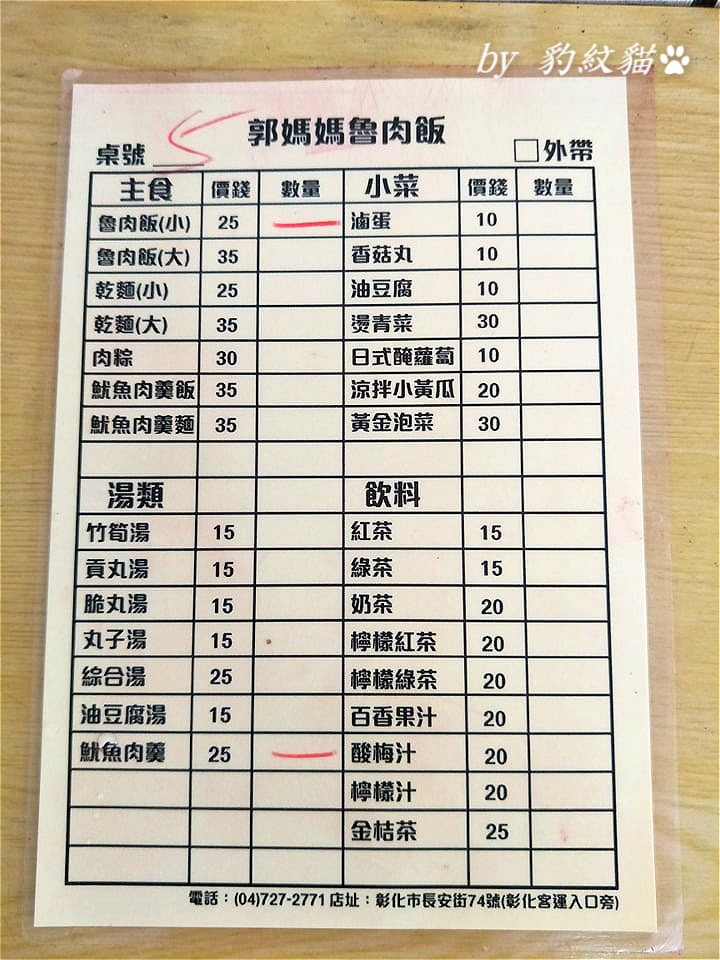 by 豹紋貓
郭媽媽魯肉飯
桌號 5 外帶
主食 價錢 數量 小菜 價錢 數量
魯肉飯(小) 25 一 滷蛋 10
魯肉飯(大) 35 香菇丸 10
乾麵(小) 25 油豆腐 10
乾麵(大) 35 燙青菜 30
肉粽 30 日式醃蘿蔔 10
魷魚肉羹飯 35 涼拌小黃瓜 20
魷魚肉羹麵 35 黃金泡菜 30
湯類 飲料
竹筍湯 15 紅茶 15
貢丸湯 15 綠茶 15
脆丸湯 15 奶茶 20
丸子湯 15 檸檬紅茶 20
綜合湯 25 檸檬綠茶 20
油豆腐湯 15 百香果汁 20
魷魚肉羹 25 一 酸梅汁 20
檸檬汁 20
金桔茶 25
電話：(04)727-2771 店址：彰化市長安街74號(彰化客運入口旁)